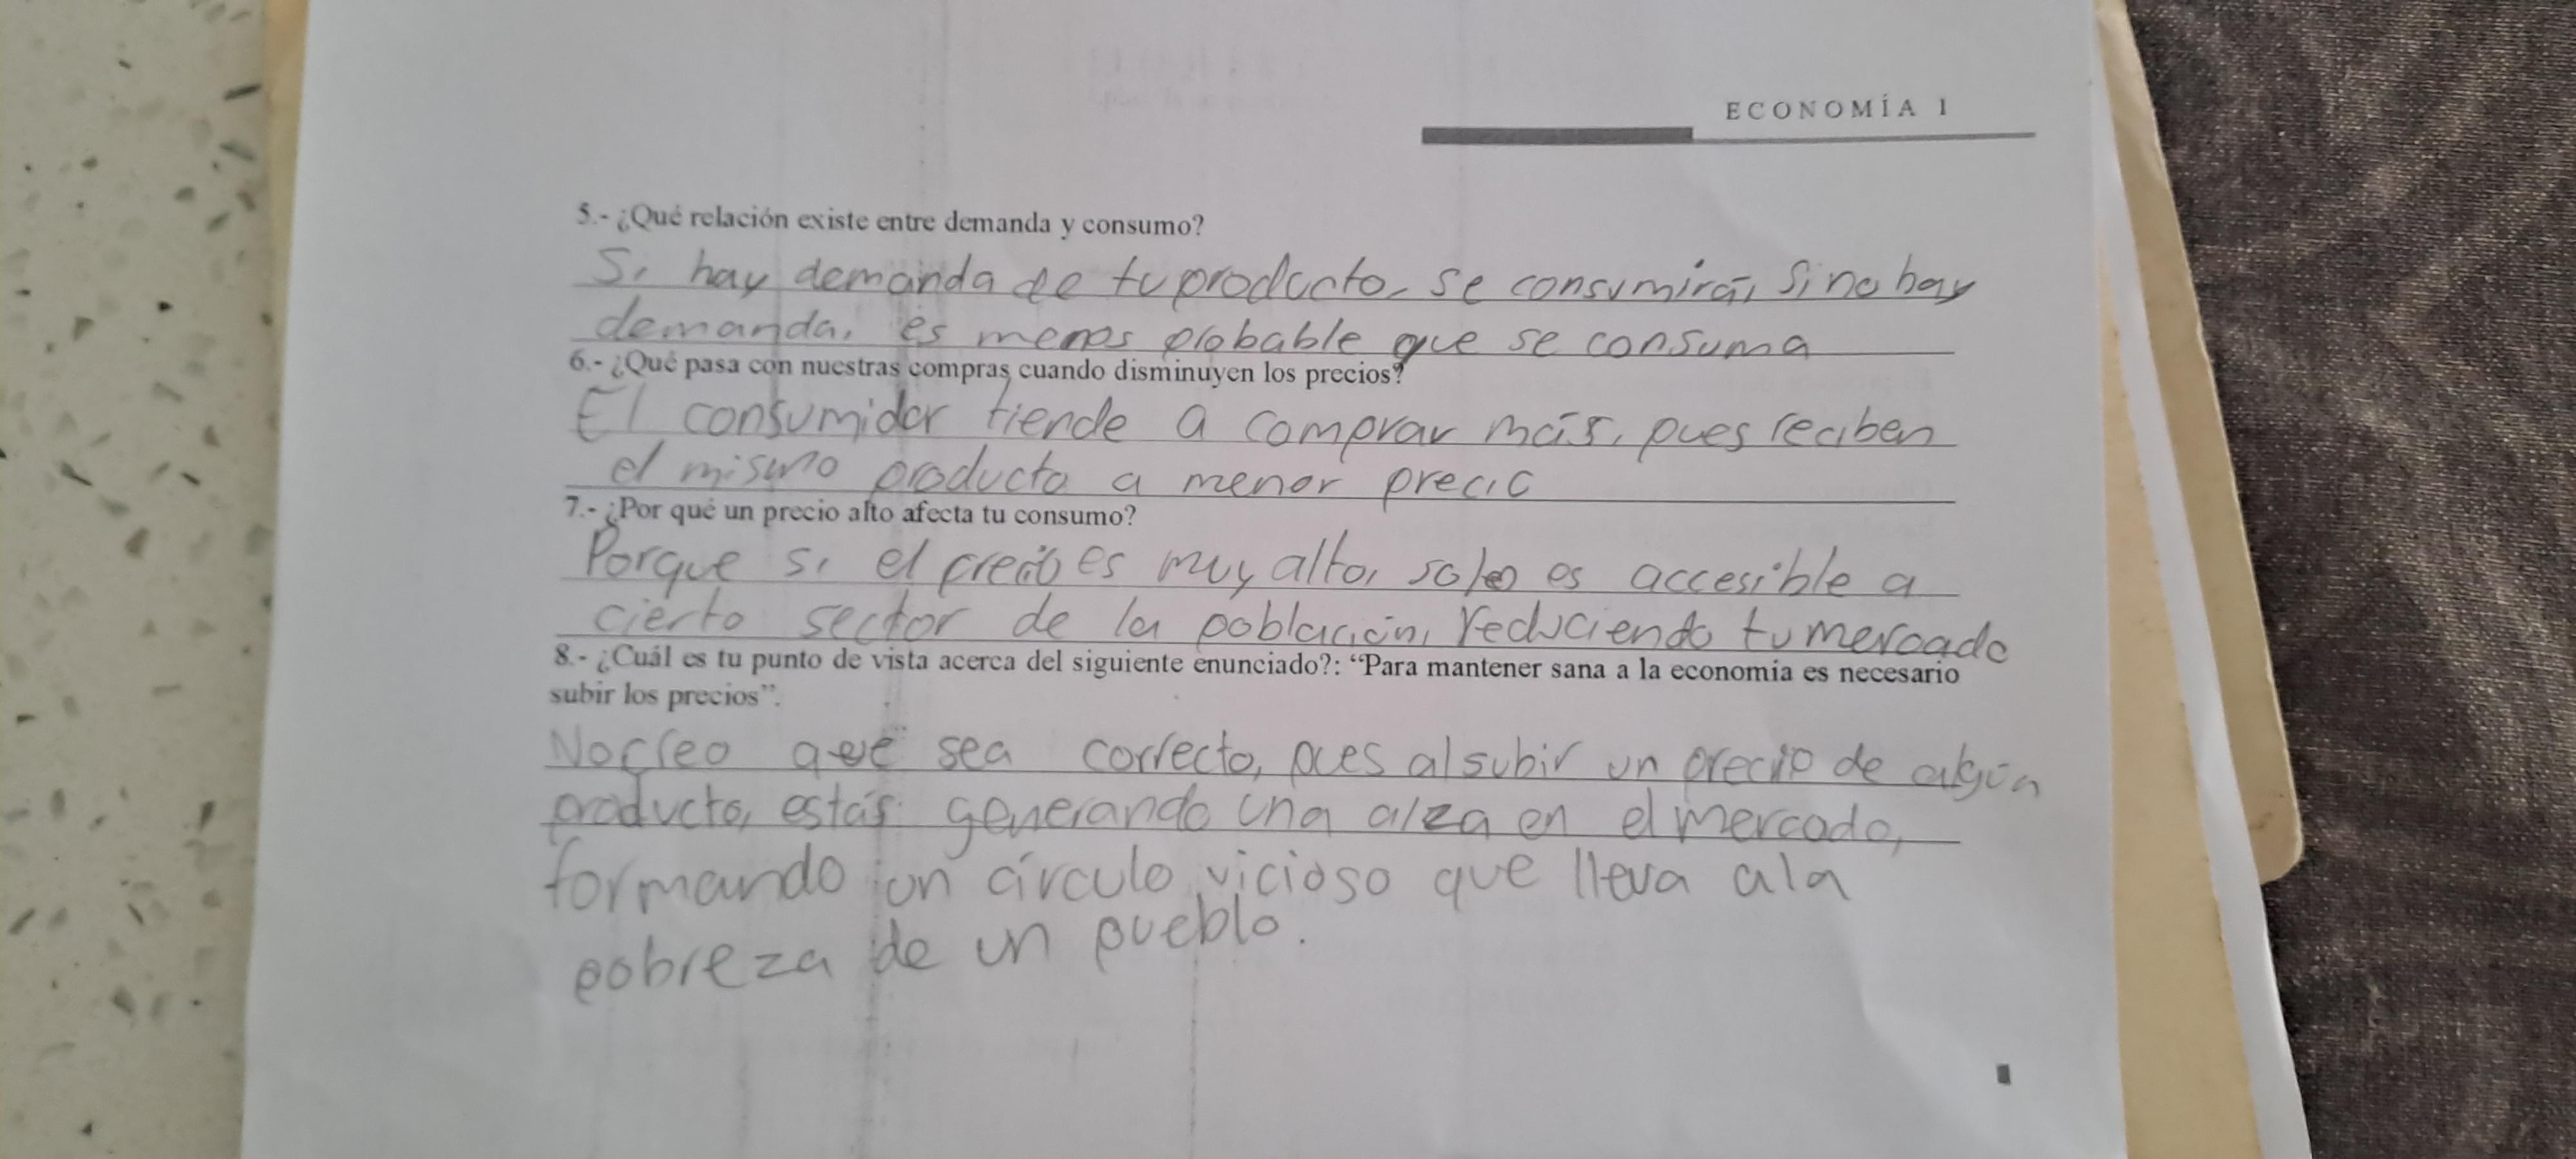 ECONOMÍA I
5.- ¿Qué relación existe entre demanda y consumo?
Si hay demanda de tu producto, se consumirá, si no hay
demanda, es menos probable que se consuma
6.- ¿Qué pasa con nuestras compras cuando disminuyen los precios?
El consumidor tiende a comprar más, pues reciben
el mismo producto a menor precio
7.- ¿Por qué un precio alto afecta tu consumo?
Porque si el precio es muy alto, solo es accesible a
cierto sector de la población, reduciendo tu mercado
8.- ¿Cuál es tu punto de vista acerca del siguiente enunciado?: “Para mantener sana a la economía es necesario
subir los precios”.
No creo que sea correcto, pues al subir un precio de algún
producto, estás generando una alza en el mercado,
formando un círculo vicioso que lleva a la
pobreza de un pueblo.